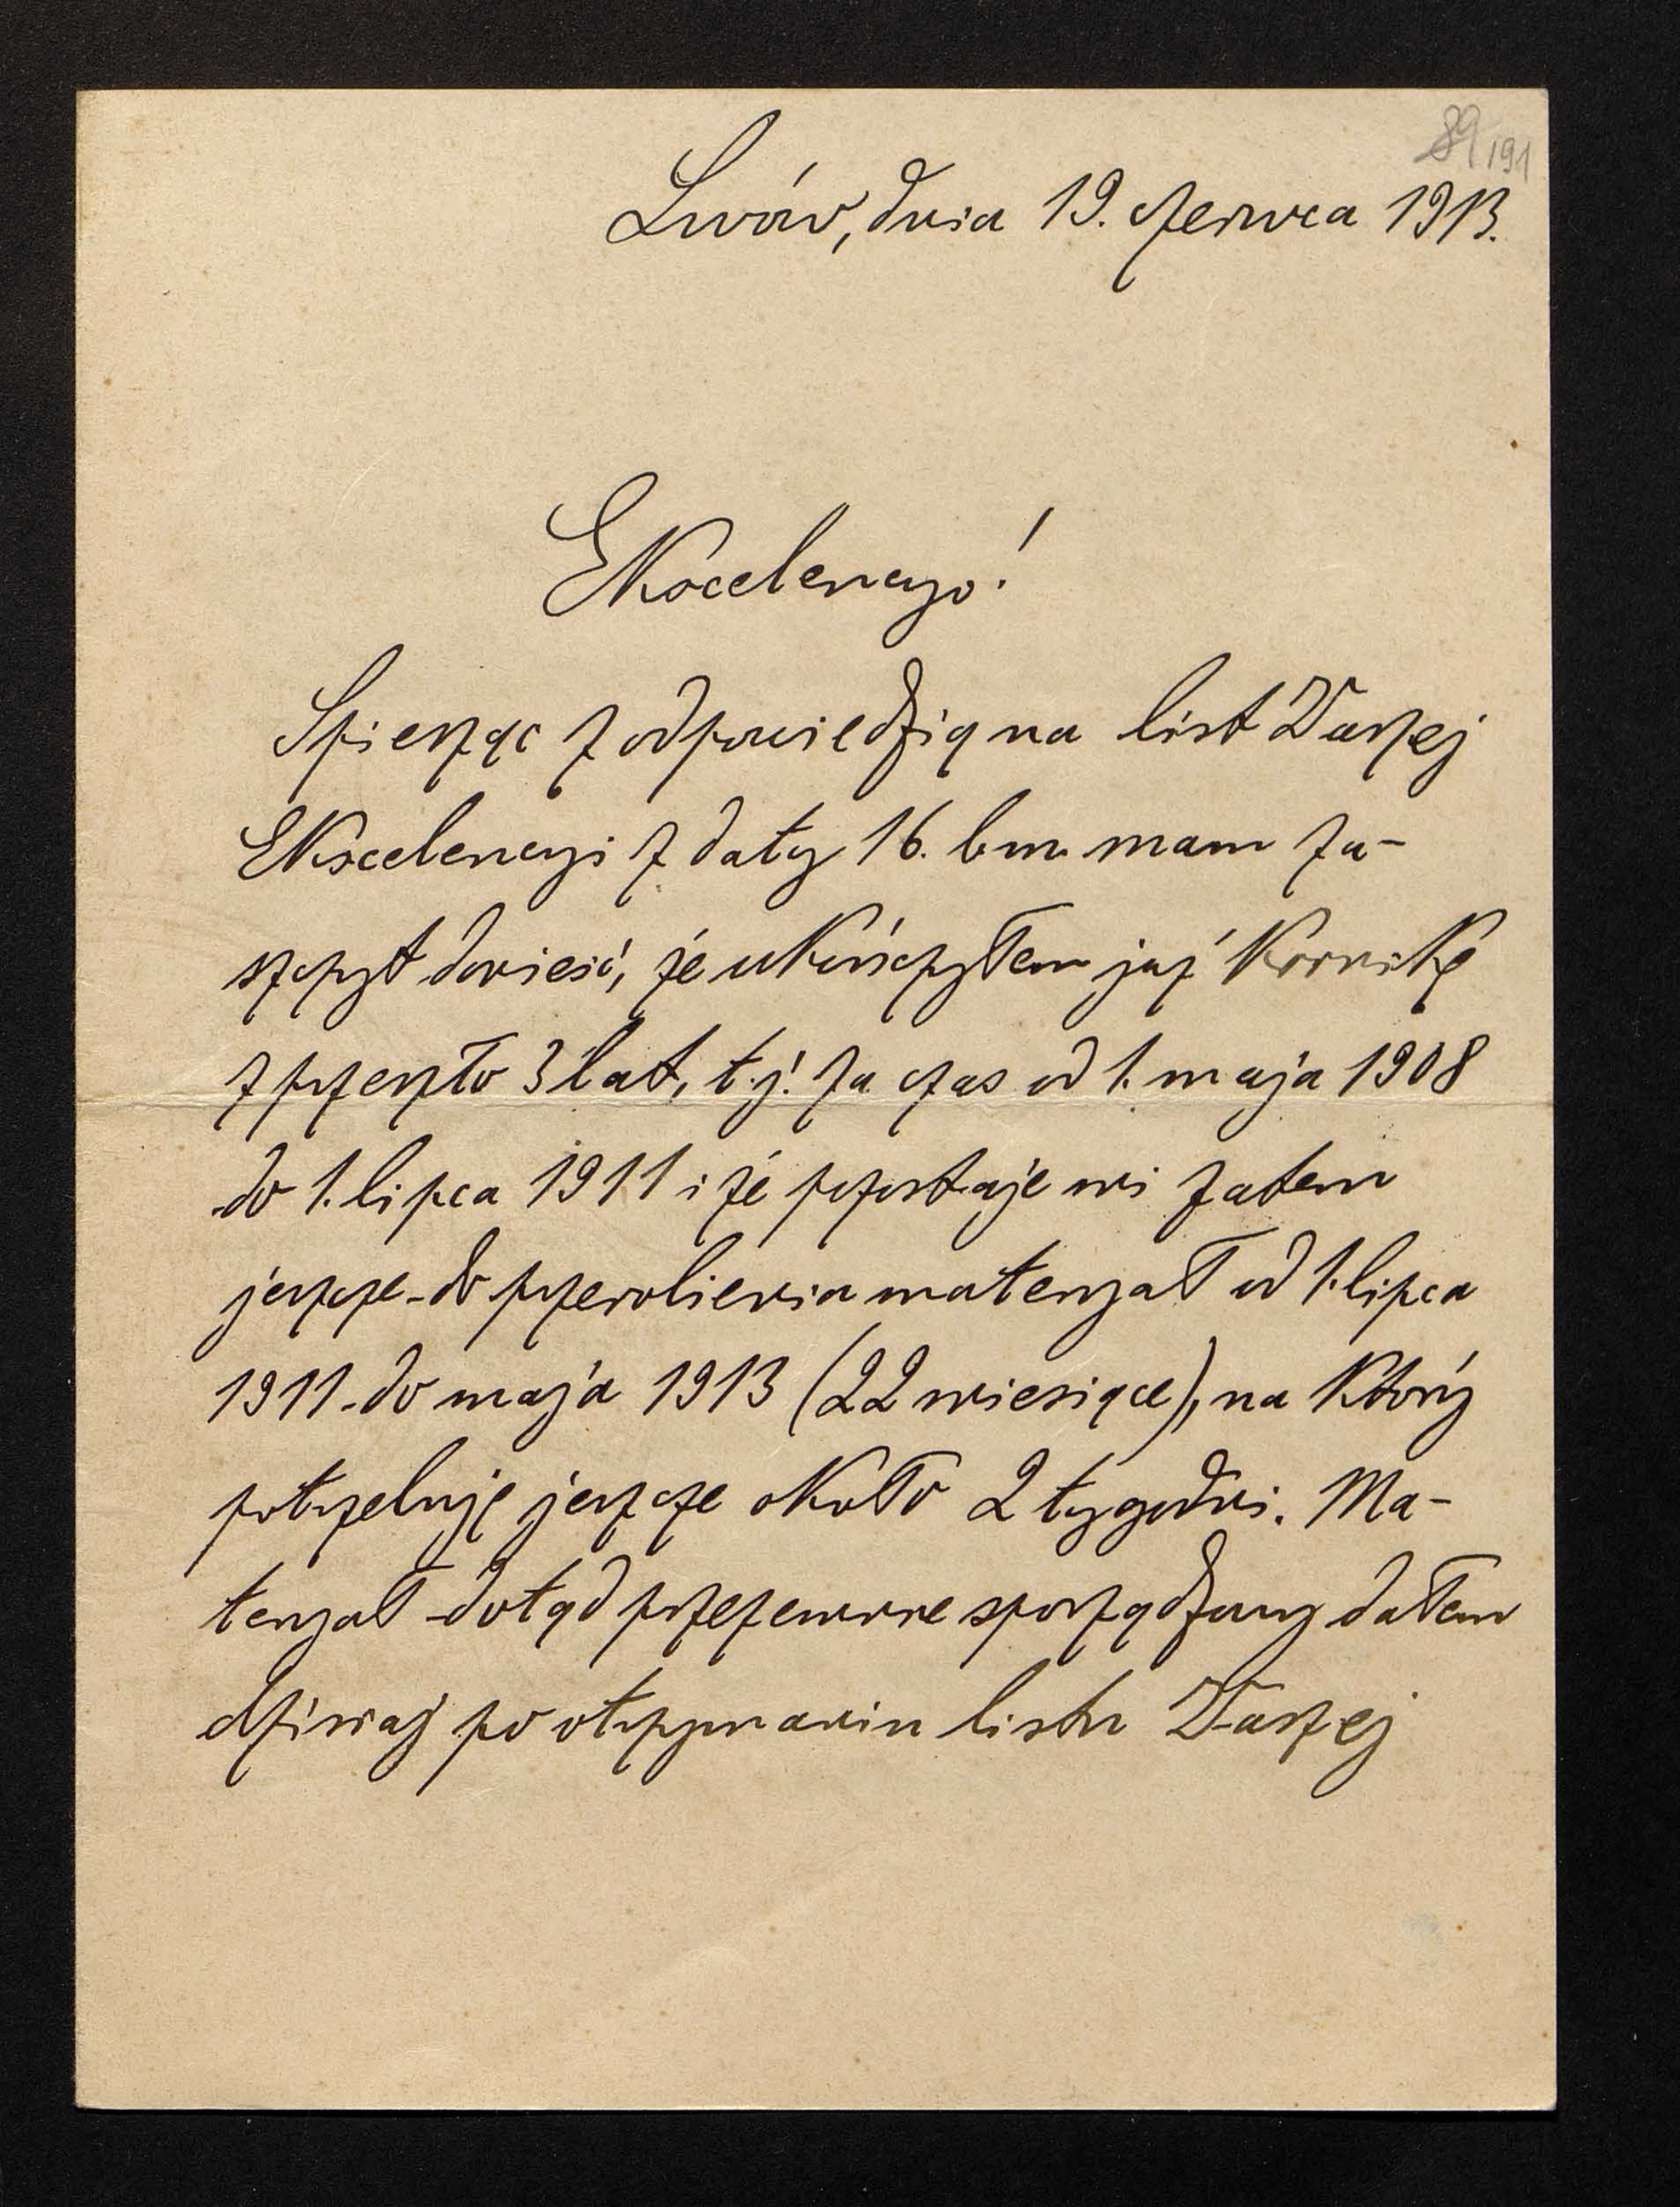 89 191
Lwów, dnia 19. czerwca 1913.
Ekscelencyo!
Spiesząc z odpowiedzią na list Waszej
Ekscelencyi z daty 16. bm. mam za-
szczyt donieść, że ukończyłem już Kronikę
z przeszło 3 lat, t. j. za czas od 1. maja 1908
do 1. lipca 1911 i że pozostaje mi zatem
jeszcze do przerobienia materyał od 1. lipca
1911 do maja 1913 (22 miesiące), na który
potrzebuję jeszcze około 2 tygodni. Ma-
teryał dotąd przezemnie sporządzony dałem
dzisiaj po otrzymaniu listu Waszej